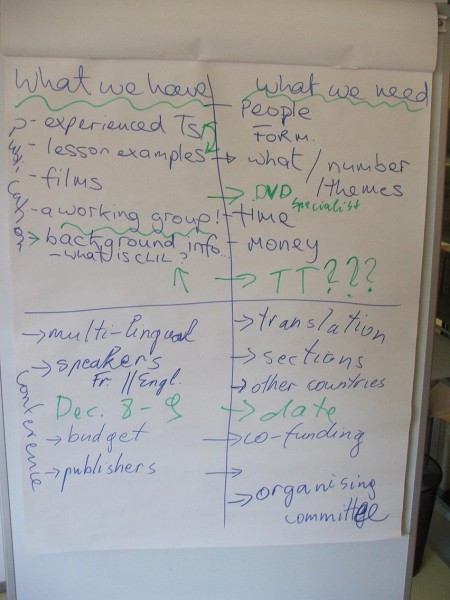 What we have
- experienced Ts
- lesson examples
- films
- a working group!
> background info
- WHAT IS CLIL?
what we need
- People
FORM
→ what / number
/ themes
→ DVD specialist
- time
- Money
→ TT???
Conference
→ multi-lingual
→ speakers
Fr // Engl.
Dec. 8-9
→ budget
→ publishers
→ translation
→ sections
→ other countries
→ date
→ co-funding
→
→ organising
committee